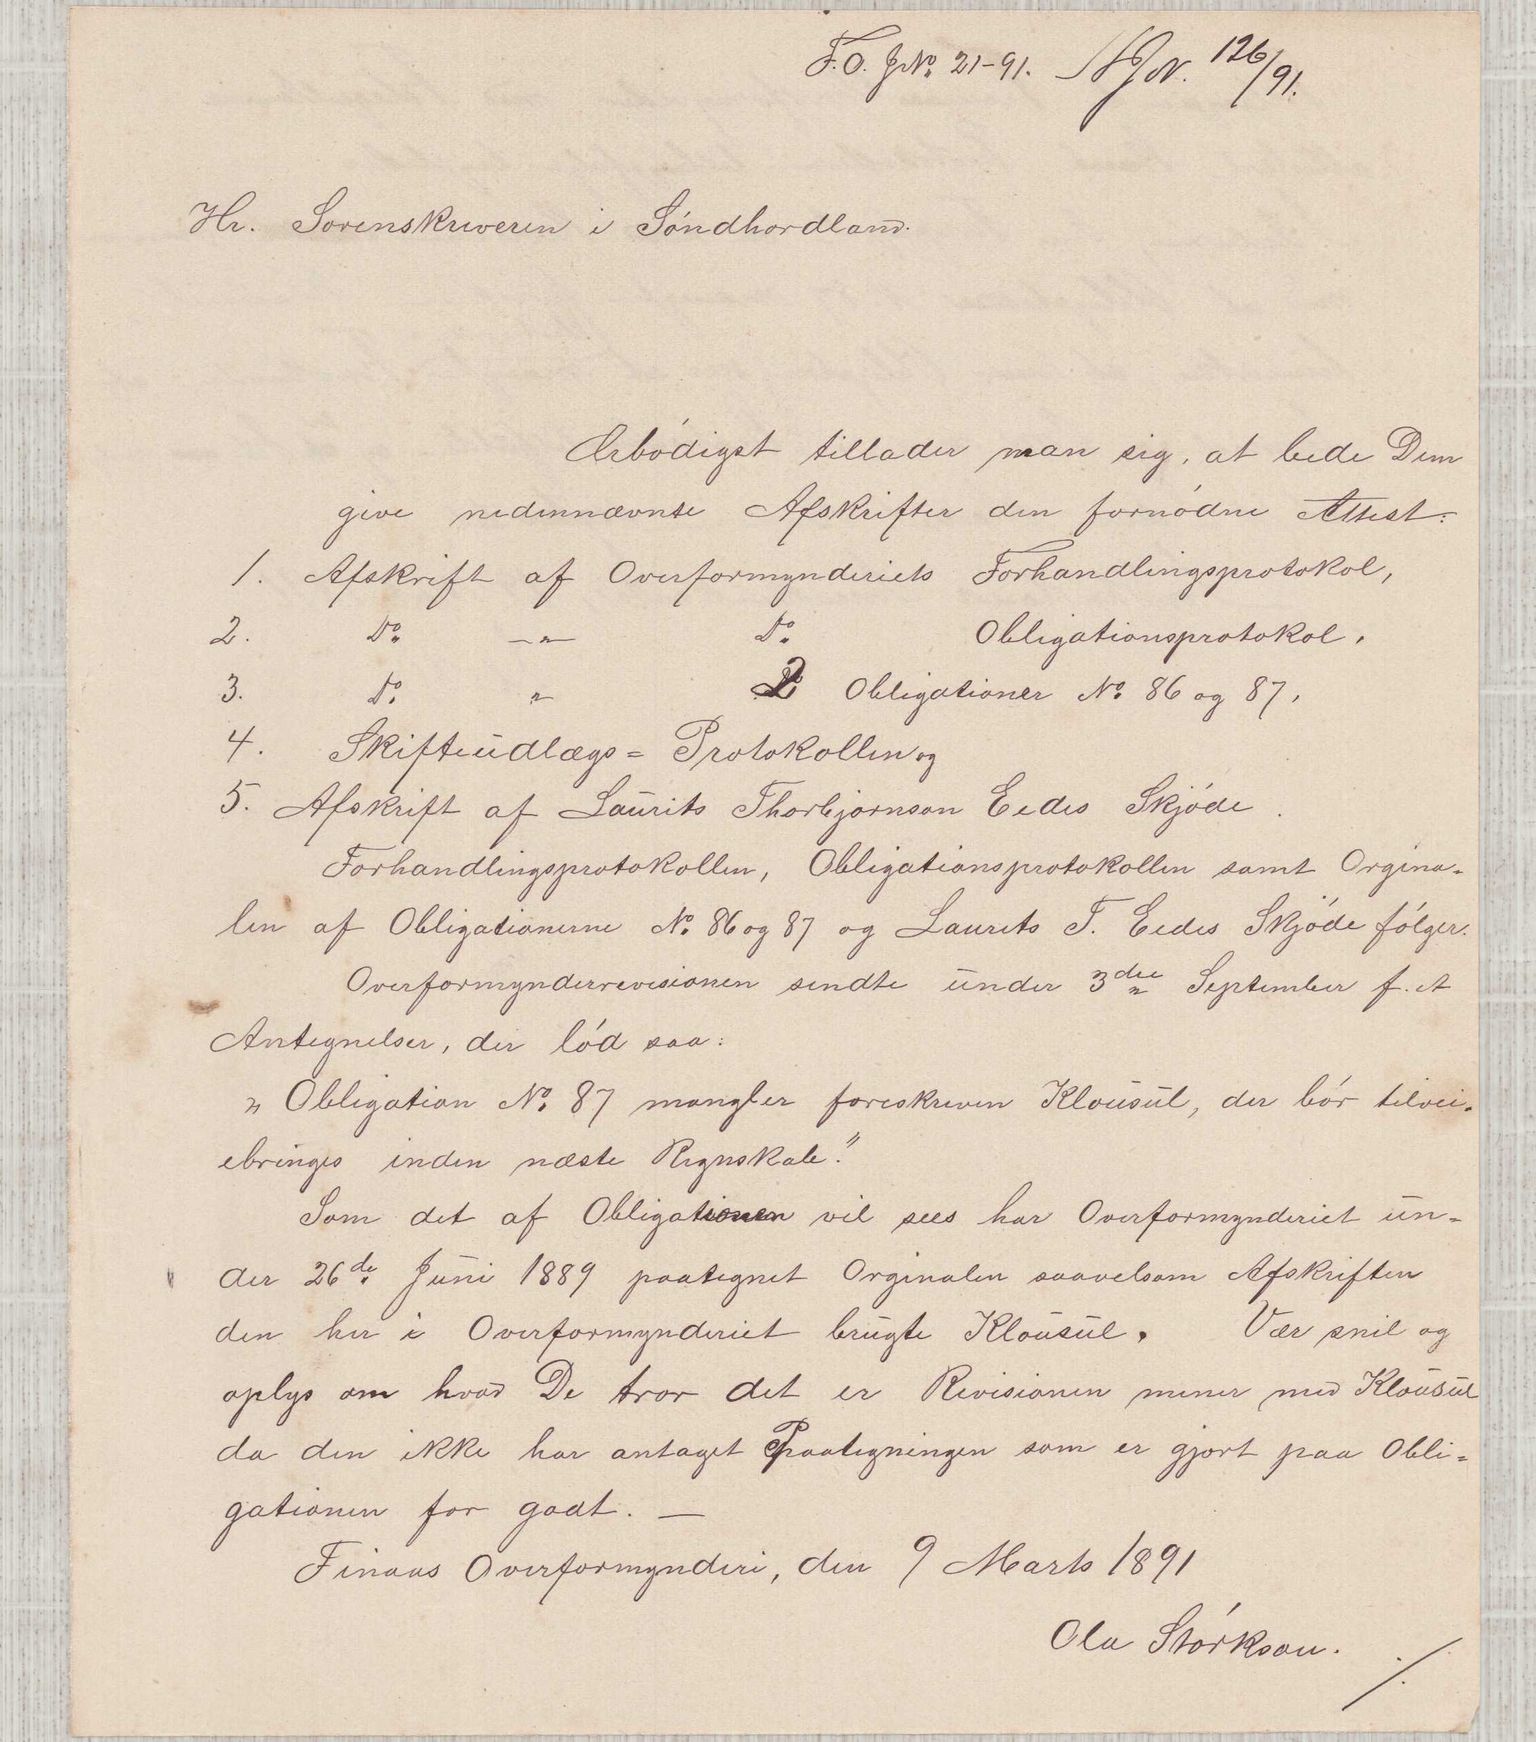 F.O. JNo. 21-91. NJN. 126/91.
Hr. Sorenskriveren i Søndhordland.
Ærbødigst tillader man sig, at bede Dem
give nedennævnte Afskrifter den fornødne Attest:
1. Afskrift af Overformynderiets Forhandlingsprotokol,
2. Do. —"— Do. Obligationsprotokol,
3. Do. " 2 Obligationer No. 86 og 87,
4. Skifteudlægs= Protokollen og
5. Afskrift af Laurits Thorbjørnson Eedes Skjøde.
Forhandlingsprotokollen, Obligationsprotokollen samt Orgina-
len af Obligationerne No. 86 og 87 og Laurits T. Eedes Skjøde følger.
Overformynderrevisionen sendte under 3die September f. A
Antegnelser, der lød saa:
„Obligation No. 87 mangler foreskreven Klausul, der bør tilvei-
ebringes inden næste Regnskab."
Som det af Obligationen vil sees har Overformynderiet un-
der 26de Juni 1889 paategnet Orginalen saavelsom Afskriften
den her i Overformynderiet brugte Klausul. Vær snil og
oplys om hvad De tror det er Revisionen mener med Klausul
da den ikke har antaget Paategningen som er gjort paa Obli-
gationen for godt. —
Finaas Overformynderi, den 9 Marts 1891
Ola Størkson.
./.